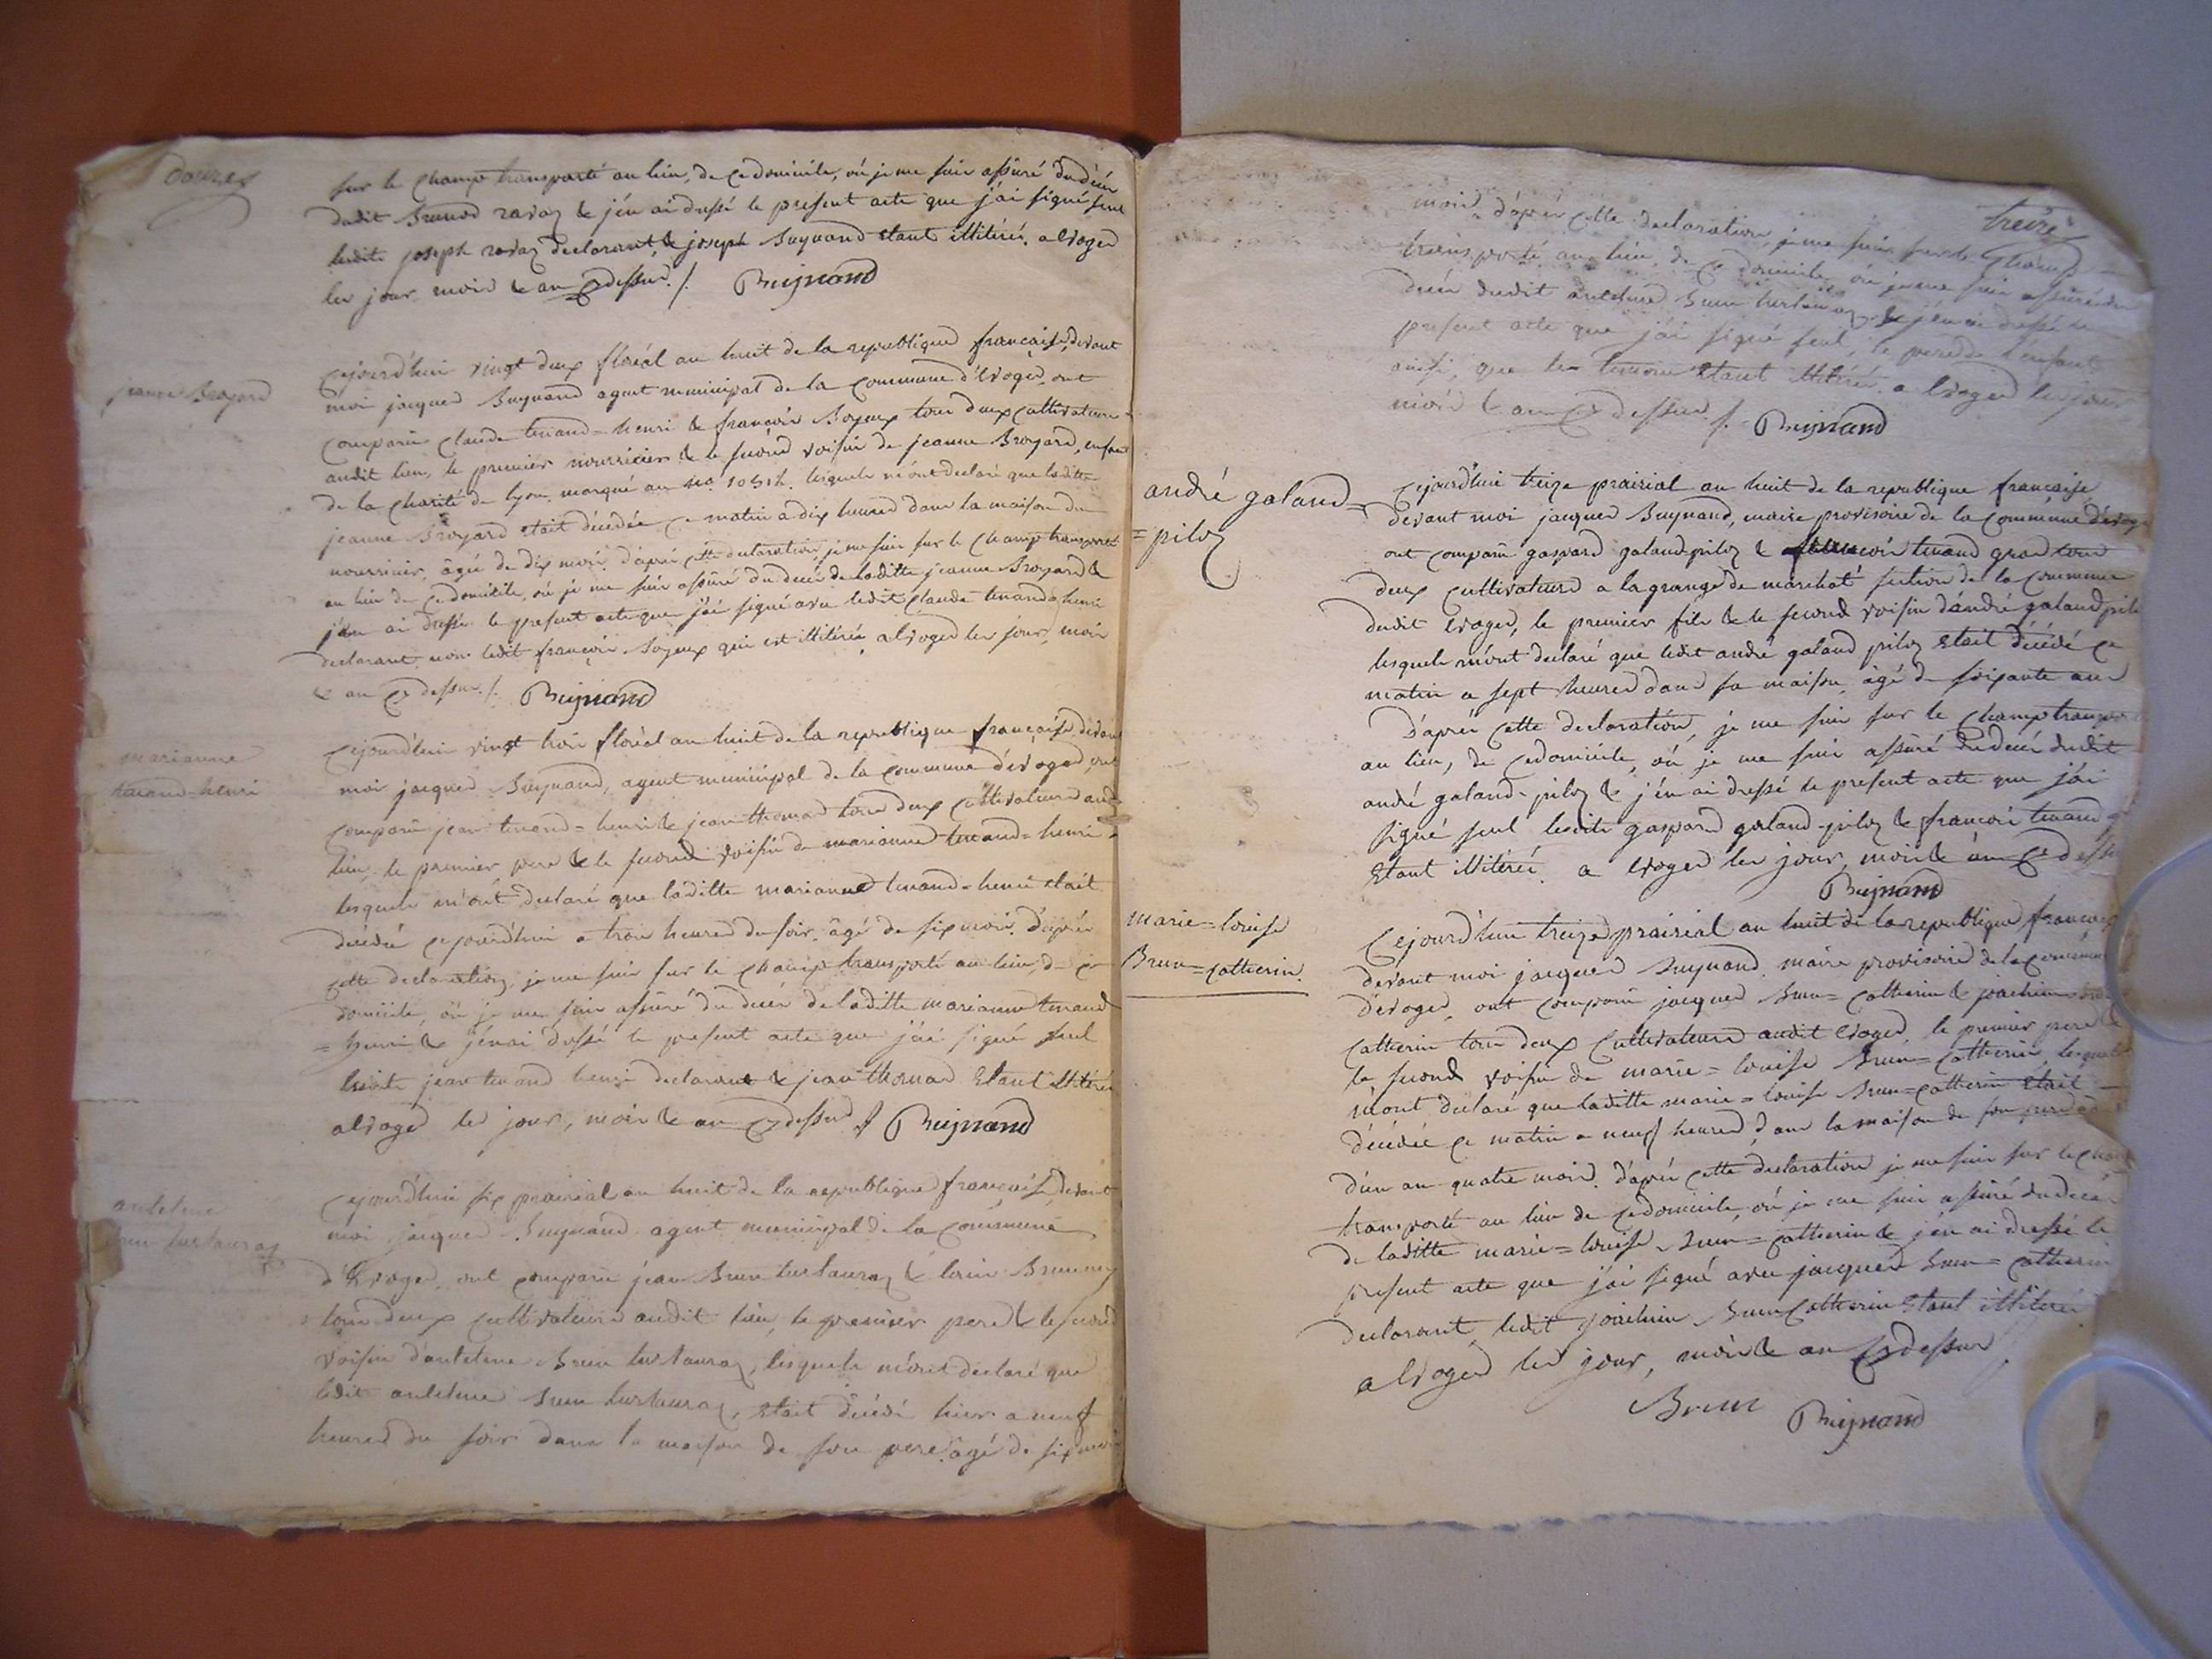 douze
sur le champ transporté au lieu, de ce domicile, où je me suis assuré du décés
dudit Brunod ravaz & j'en ai dressé le present acte que j'ai signé seul
lesdits joseph ravaz declarant & joseph Buynand étant illitérés. a Evoges
les jour mois & an cy dessus ./. Buynand
jeanne Broyard
Cejourd'hui vingt deux floréal an huit de la republique française, devant
moi jacques Buynand agent municipal de la Commune d'Evoges, ont
comparu claude tenand = henri & françois Bojeux tous deux cultivateurs
audit lieu, le premier nourricier & le second voisin de jeanne Broyard, enfant
de la charité de lyon, marqué au no. lesquels m'ont declaré que laditte
jeanne Broyard était décédée ce matin a dix heures dans la maison du
nourricier, âgé de dix mois, d'aprés cette declaration, je me suis sur le champ transporté
au lieu de ce domicile, où je me suis assuré du decés de laditte jeanne Broyard &
j'en ai dressé le present acte que j'ai signé avec ledit Claude tenand henri
declarant non ledit françois Bojeux qui est illitéré, a Evoges les jour, mois
& an cy dessus ./. Buynand
marianne
tenand=henri
Cejourd'hui vingt trois floréal an huit de la republique française, devant
moi jacques Buynand, agent municipal de la commune d'évoges, ont
comparu jean tenand = henri & jean thomas tous deux cultivateurs audit
lieu, le premier pere & le second voisin de marianne tenand = henri
lesquels m'ont declaré que laditte marianne tenand = henri était
décédée cejourd'hui a trois heures du soir, âgé de six mois. D'aprés
cette declaration, je me suis sur le champ transporté au lieu, de ce
domicile, où je me suis assuré du decés de laditte marianne tenand
= henri & j'en ai dressé le present acte que j'ai signé seul
lesdits jean tenand henri declarant & jean thomas étant illitérés
a Evoges les jour, mois & an cy dessus ./. Buynand
antelme
brun turtauraz
Cejourd'hui six prairial an huit de la republique française, devant
moi jacques Buynand agent municipal de la commune
d'Evoges, ont comparu jean Brun turtauraz & louis Brun
tous deux cultivateurs audit lieu, le premier pere & le second
voisin d'antelme Brun turtauraz, lesquels m'ont declaré que
ledit antelme Brun turtauraz, était décédé hier a neuf
heures du soir dans la maison de son pere, âgé de six mois
treize
mois, d'aprés cette declaration, je me suis sur le champ
transporté au lieu, de ce domicile, où je me suis assuré du
decés dudit antelme Brun turtauraz & j'en ai dressé le
present acte que j'ai signé seul, le pere de l'enfant
ainsi, que les temoins étant illitérés. a Evoges les jour
mois & an cy dessus ./. Buynand
andré galand=
=piloz
Cejourd'hui treize prairial an huit de la republique française
devant moi jacques Buynand, maire provisoire de la commune d'évoges
ont comparu gaspard galand piloz & françois tenand grand tous
deux cultivateurs a la grange de marchat section de la commune
dudit Evoges, le premier fils & le second voisin d'andré galand piloz
lesquels m'ont declaré que ledit andré galand piloz était décédé ce
matin a sept heures dans sa maison, âgé de soixante ans
D'aprés cette declaration, je me suis sur le champ transporté
au lieu, de ce domicile, où je me suis assuré du decés dudit
andré galand-piloz & j'en ai dressé le present acte que j'ai
signé seul lesdits gaspard galand-piloz & françois tenand g
étant illitérés. a Evoges les jour, mois & an cy dessus
Buynand
marie=louise
Brun=catherin.
Cejourd'hui treize prairial an huit de la republique française
devant moi jacques Buynand, maire provisoire de la commune
d'évoges, ont comparu jacques Brun = catherin & joachim brun
catherin tous deux cultivateurs audit Evoges, le premier pere &
le second voisin de marie = louise Brun = catherin, lesquels
m'ont declaré que laditte marie = louise Brun = catherin était
décédée ce matin a neuf heures, dans la maison de son pere, âgé
d'un an quatre mois. d'aprés cette declaration je me suis sur le champ
transporté au lieu de ce domicile, où je me suis assuré du decés
de laditte marie = louise Brun = catherin & j'en ai dressé le
present acte que j'ai signé avec jacques Brun = catherin
declarant, ledit joachim Brun catherin étant illitéré.
a Evoges les jour, mois & an cy dessus
Brun Buynand